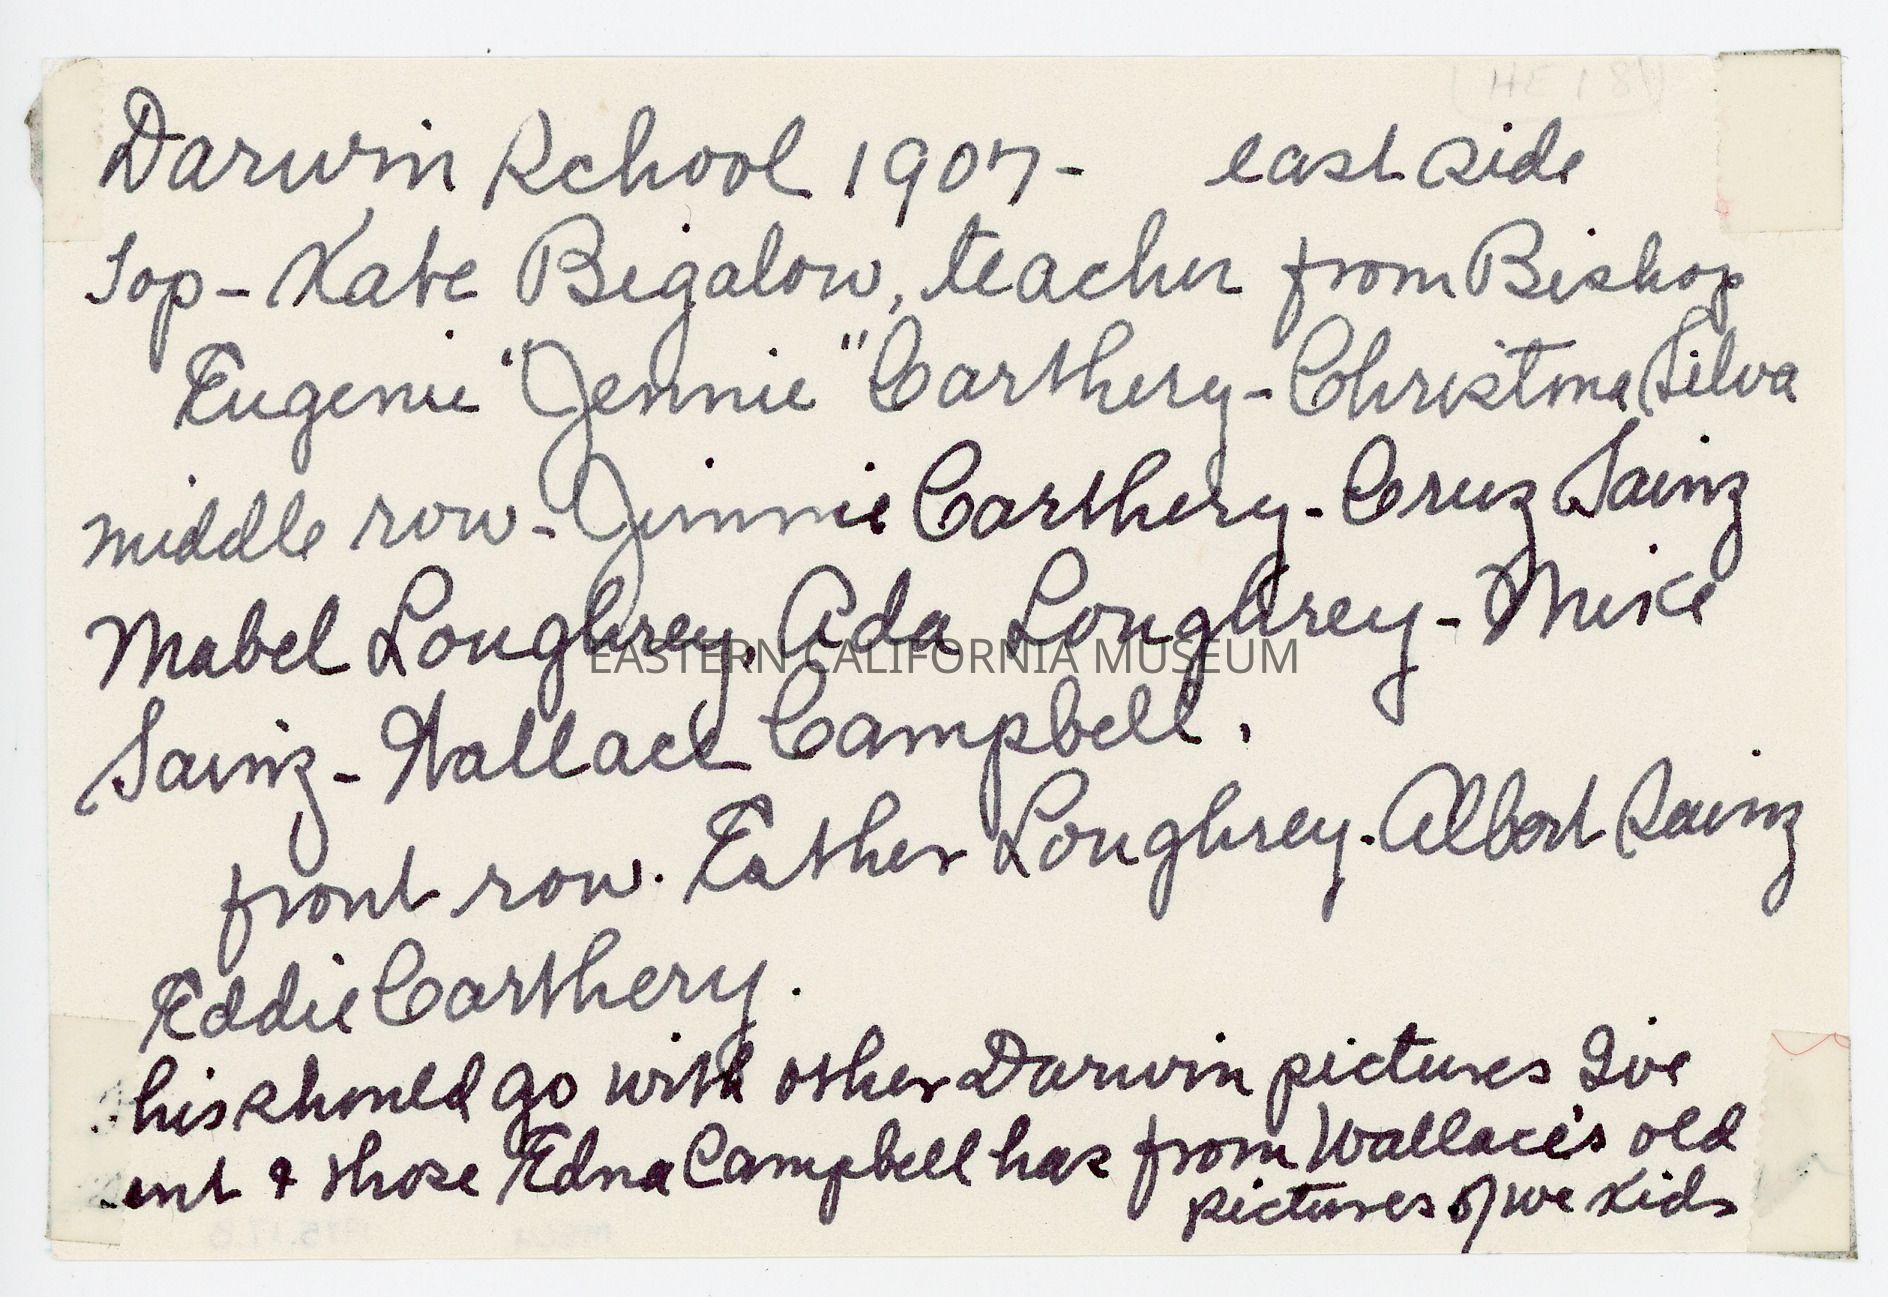 Darwin School 1907- east side
Top - Kate Bigalow, teacher from Bishop
Eugenie "Jennie" Carthery - Christina Silva
middle row - Jimmie Carthery - Cruz Sainz
Mabel Loughrey, Ada Loughrey - Mike
EASTERN CALIFORNIA MUSEUM
Sainz - Wallace Campbell.
front row. Esther Loughrey - Albert Sainz
Eddie Carthery.
his should go with other Darwin pictures I've
ent & those Edna Campbell has from Wallace's old
pictures of we kids